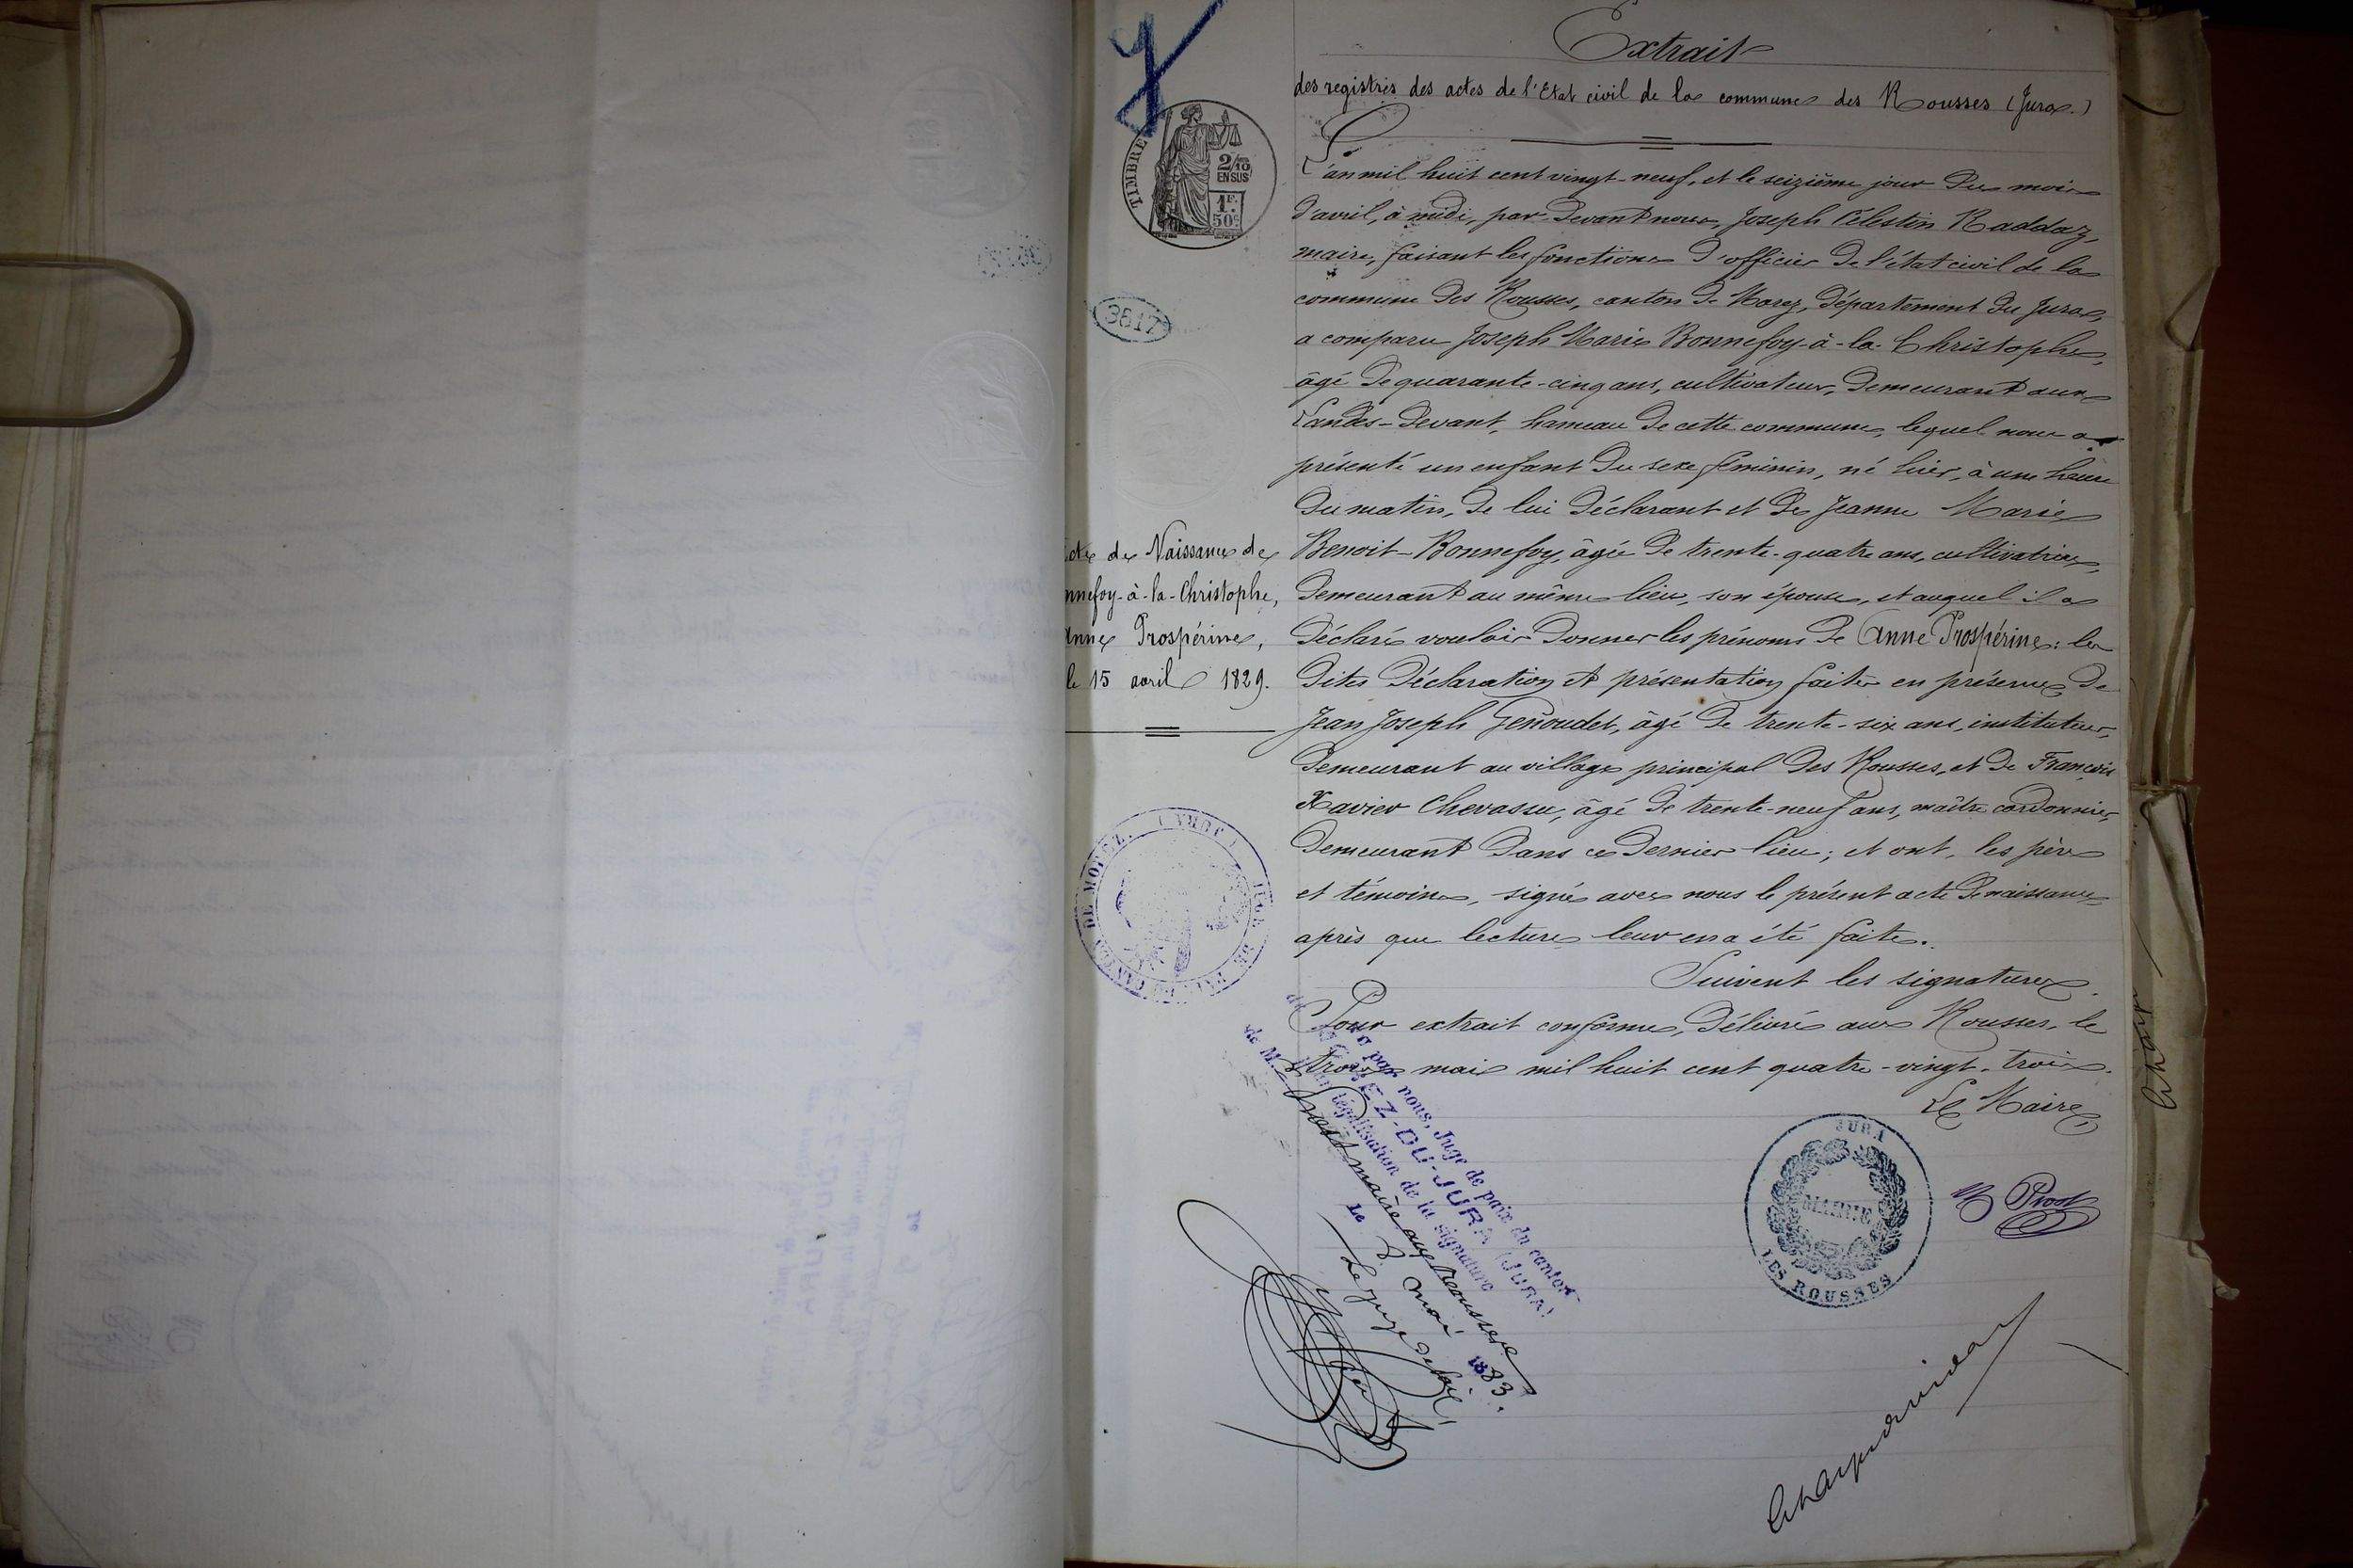 Extrait
des registres des actes de l'Etat civil de la commune des Rousses (Jura.)
TIMBRE
2/10
EN SUS
1F.
50c
3617
L'an mil huit cent vingt-neuf, et le seizième jour du mois
d'avril, à midi, par devant nous, Joseph Célestin Raddaz,
maire, faisant les fonctions d'officier de l'état civil de la
commune des Rousses, canton de Morez, département du Jura,
a comparu Joseph Marie Bonnefoy-à-la-Christophe,
âgé de quarante-cinq ans, cultivateur, demeurant aux
Landes-Devant, hameau de cette commune, lequel nous a
présenté un enfant du sexe féminin, né hier, à une heure
du matin, de lui déclarant et de Jeanne Marie
Benoit-Bonnefoy, âgée de trente-quatre ans, cultivatrice,
demeurant au même lieu, son épouse, et auquel il a
déclaré vouloir donner les prénoms de Anne Prospérine: les
dites déclaration et présentation faites en présence de
Jean Joseph Genoudet, âgé de trente-six ans, instituteur,
demeurant au village principal des Rousses, et de François
Xavier Chevassu, âgé de trente-neuf ans, maître cordonnier,
demeurant dans ce dernier lieu; et ont, les père
et témoins, signé avec nous le présent acte de naissance
après que lecture leur en a été faite.
Suivent les signatures.
Pour extrait conforme, délivré aux Rousses, le
trois mai mil huit cent quatre-vingt-trois.
Le Maire,
M Prost
JURA
MAIRIE
LES ROUSSES
Acte de Naissance de
nnefoy-à-la-Christophe,
Anne Prospérine,
le 15 avril 1829.
JUGE DE PAIX DU CANTON DE MOREZ. (JURA)
Vu par nous, Juge de paix du canton
de MOREZ-DU-JURA (JURA)
pour légalisation de la signature
de M. Prost maire aux Rousses
Le 3 mai 1883.
Le juge de paix,